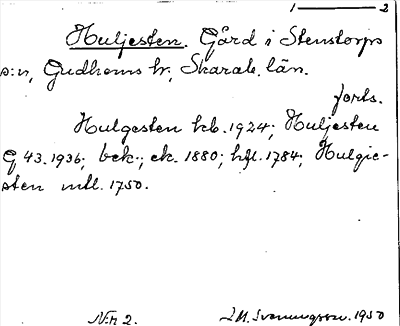 1 ——— 2
Huljesten. Gård i Stenstorps
s:n, Gudhems hr, Skarab. län.
forts.
Hulgesten kb. 1924; Huljesten
G 43. 1936; bek.; ek. 1880; hfl. 1784; Hulgie-
sten mtl. 1750.
N:r 2. J.M. Svenungsson. 1930